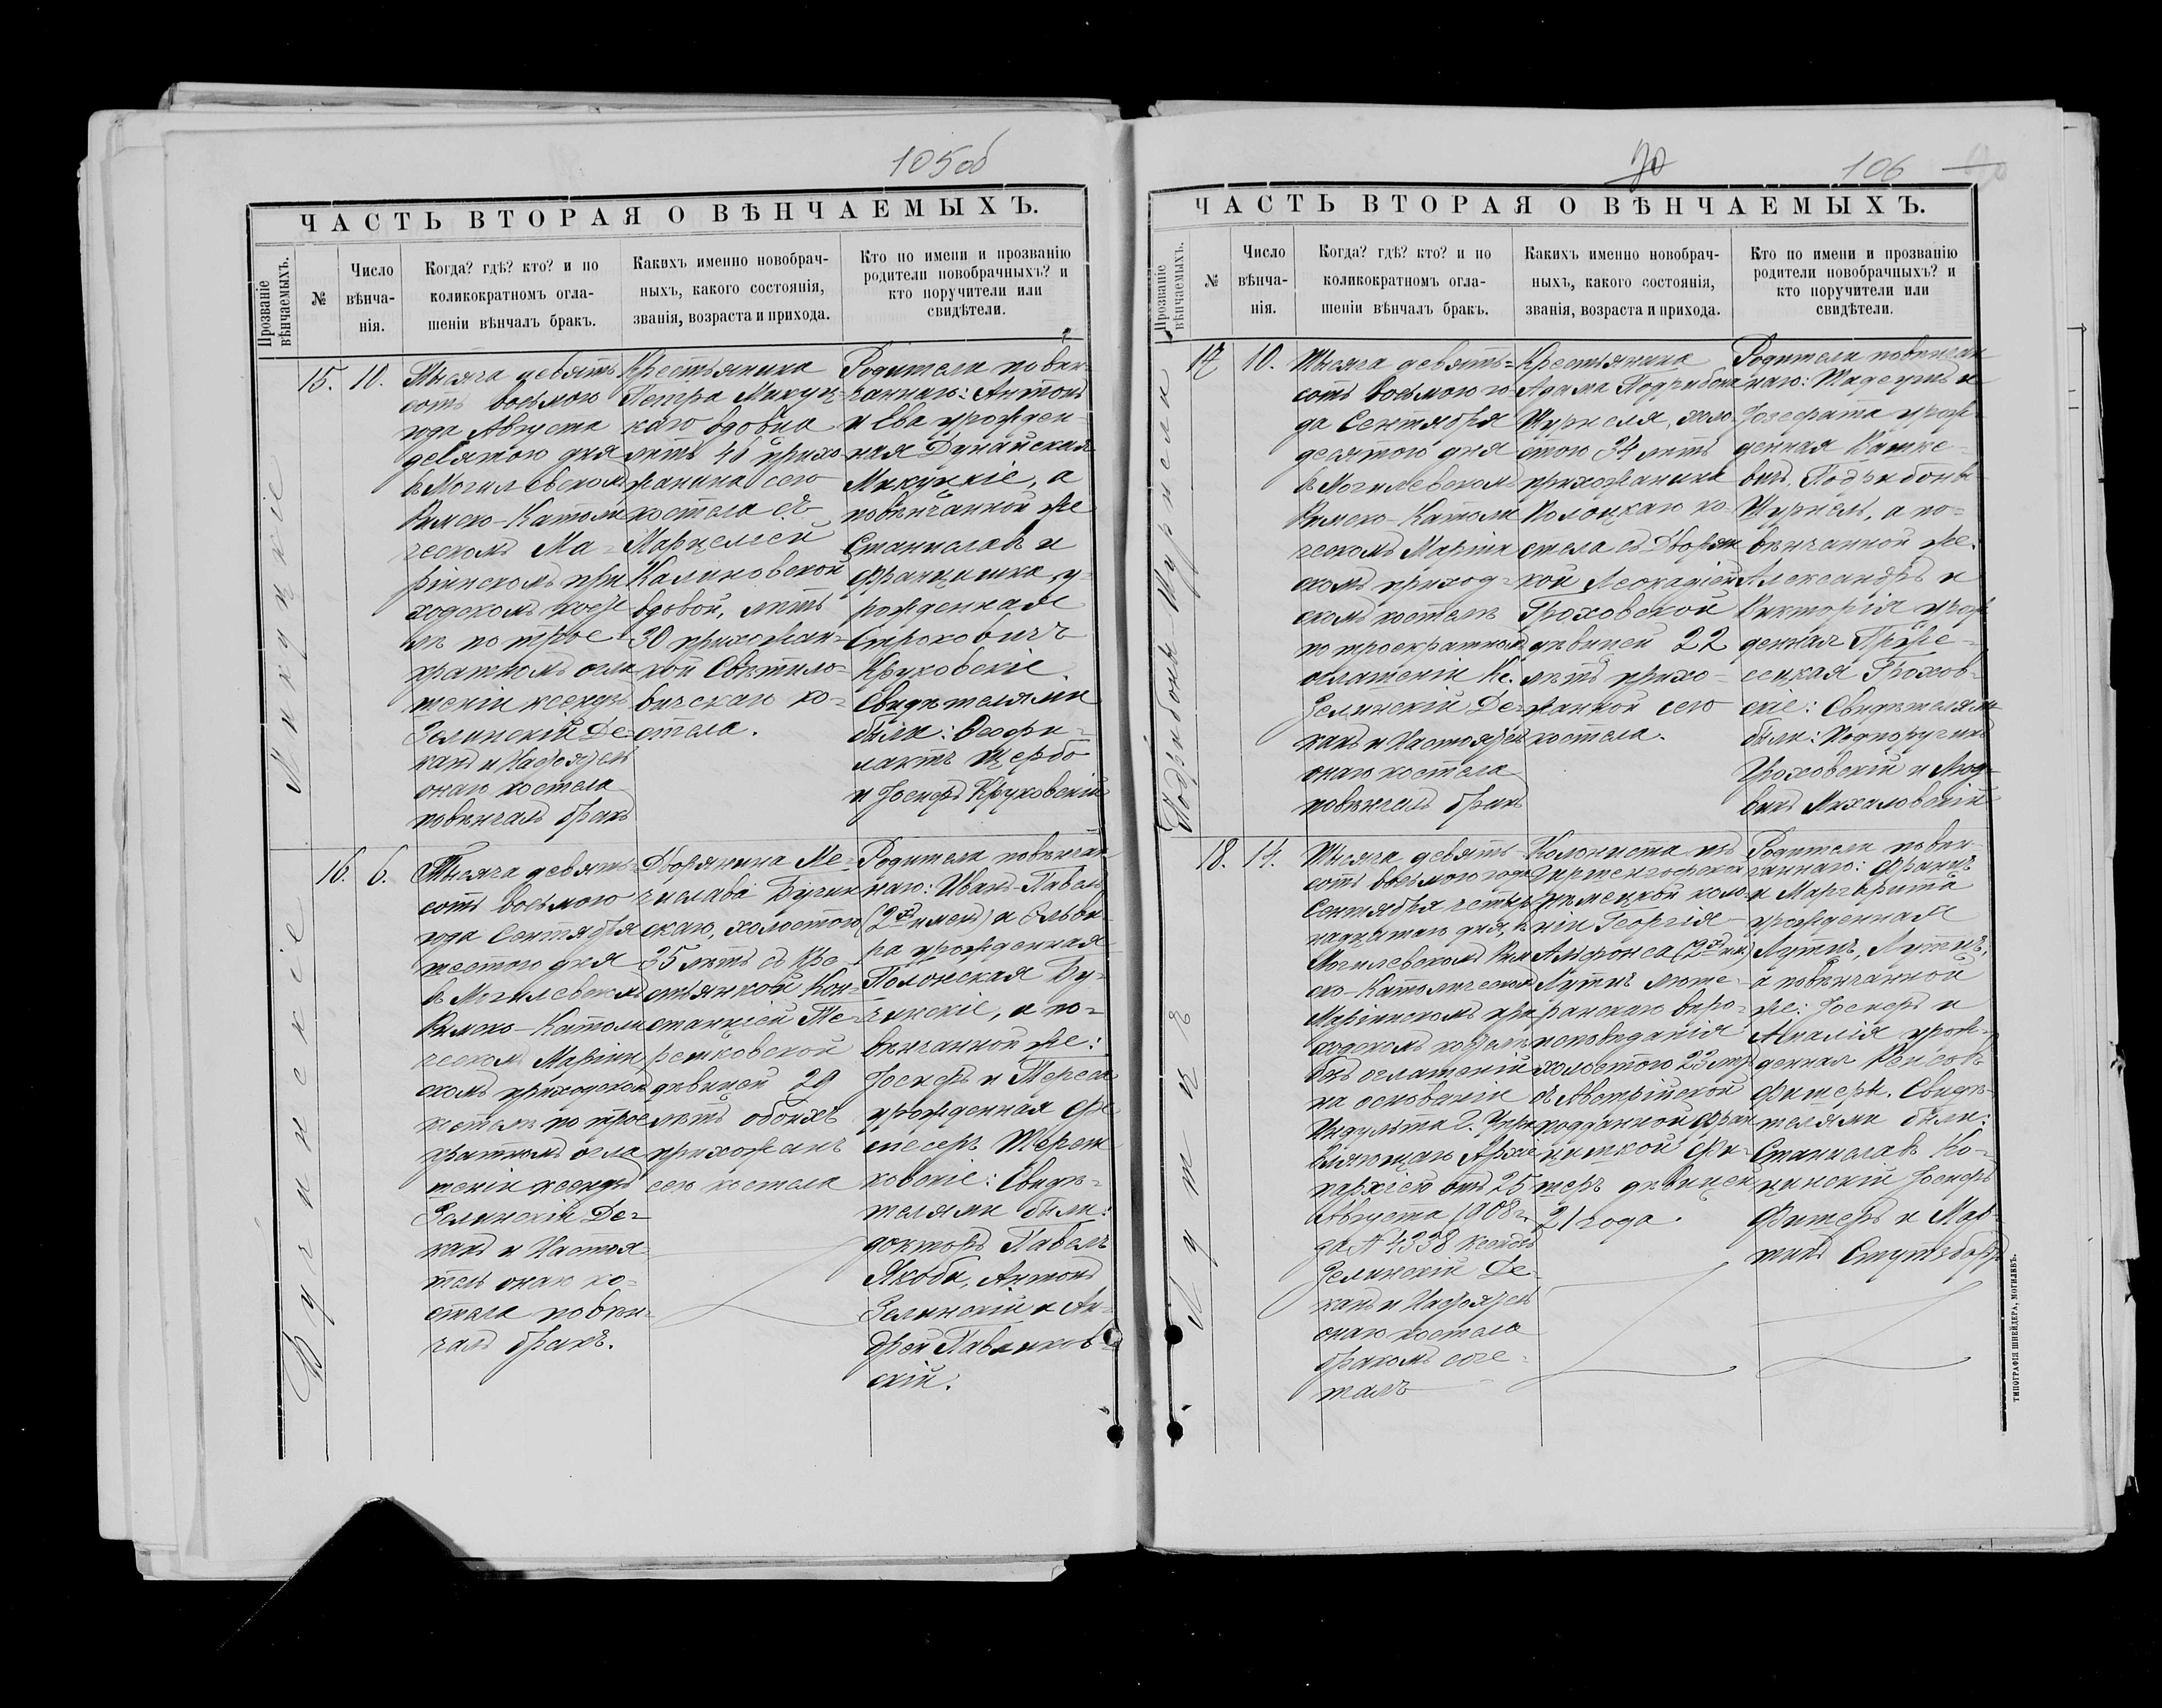 105об
ЧАСТЬ ВТОРАЯ О ВѢНЧАЕМЫХЪ.
Прозваніе
вѣнчаемыхъ.
№
Число
вѣнча-
нія.
Когда? гдѣ? кто? и по
коликократномъ огла-
шеніи вѣнчалъ бракъ.
Какихъ именно новобрач-
ныхъ, какого состоянія,
званія, возраста и прихода.
Кто по имени и прозванію
родители новобрачныхъ? и
кто поручители или
свидѣтели.
Микуцкіе
15.
10.
Тысяча девять
сотъ восьмого
года Августа
девятого дня
въ Могилевскомъ
Римско-Католи
ческомъ Ма-
ріинскомъ при
ходскомъ косте
лѣ по трое-
кратномъ огла
шеніи ксендзъ
Зелинскій Де-
канъ и Настоятель
онаго костела
повѣнчалъ бракъ
Крестьянина
Петра Микуц-
каго вдовца
лѣтъ 46 прихо
жанина сего
костела съ
Марцелей
Калиновской
вдовой, лѣтъ
30 прихожан-
кой Свѣтило-
вичскаго ко-
стела.
Родители повѣн-
чаннаго: Антонъ
и Ева урожден-
ная Дунайская
Микуцкіе, а
повѣнчанной же
Станиславъ и
Францишка у-
рожденная
Круковскіе.
Свидѣтелями
были: Феофи-
лактъ Щербо
и Іосифъ Круковскій
Бучинскіе
16.
6.
Тысяча девять-
сотъ восьмого
года Сентября
шестого дня
въ Могилевскомъ
Римско-Католи
ческомъ Маріин
скомъ приходскомъ
костелѣ по трое
кратномъ огла
шеніи ксендзъ
Зелинскій Де-
канъ и Настоя-
тель онаго ко-
стела повѣн-
чалъ бракъ.
Дворянина Ме-
числава Бучин
скаго, холостого
35 лѣтъ съ Кре-
стьянкой Кон-
станціей Те-
решковской
дѣвицей 29
лѣтъ обоихъ
прихожанъ
сего костела
Родители повѣнчан
наго: Иванъ-Павелъ
(2хъ именъ) и Эльви-
ра урожденная
Полонская Бу-
чинскіе, а по-
вѣнчанной же:
Іосифъ и Тереса
урожденная
Тереш
ковскіе: Свидѣ-
телями были:
докторъ Павелъ
Якоби, Антонъ
Зелинскій и Ан-
дрей Павликов-
скій.
70
106
ЧАСТЬ ВТОРАЯ О ВѢНЧАЕМЫХЪ.
Прозваніе
вѣнчаемыхъ.
№
Число
вѣнча-
нія.
Когда? гдѣ? кто? и по
коликократномъ огла-
шеніи вѣнчалъ бракъ.
Какихъ именно новобрач-
ныхъ, какого состоянія,
званія, возраста и прихода.
Кто по имени и прозванію
родители новобрачныхъ? и
кто поручители или
свидѣтели.
17
10.
Тысяча девять-
сотъ восьмого го-
да Сентября
десятого дня
въ Могилевскомъ
Римско-Католи
ческомъ Маріин
скомъ приход-
скомъ костелѣ
по троекратномъ
оглашеніи Кс.
Зелинскій Де-
канъ и Настоятель
онаго костела
повѣнчалъ бракъ
Крестьянина
Адама
холо-
стого 34 лѣтъ
прихожанина
Полоцкаго ко-
стела съ Дворян
кой Леокадіей
Гроховской
дѣвицей 22
лѣтъ прихо-
жанкой сего
костела.
Родители повѣнчан
наго: Тадеушъ и
Іозефата урож-
денная
а по-
вѣнчанной же:
Александръ и
Викторія урож
денная Прже-
сецкая Грохов-
скіе: Свидѣтелями
были: Подпоручикъ
Гроховскій и Люд-
викъ Михаловскій
Лутце
18.
14.
Тысяча девять
сотъ восьмого года
Сентября четыр
надцатаго дня, въ
Могилевскомъ Рим
ско-Католическомъ
Маріинскомъ при
ходскомъ костелѣ
безъ оглашеній
на основаніи
Индульта Г. Упра
вляющаго Архіе
пархіей отъ 25
Августа 1908 г.
за № 4338 ксендзъ
Зелинскій Де-
канъ и Настоятель
онаго костела
бракомъ соче-
талъ
Колониста изъ
Гиршенгофской
нѣмецкой коло-
ніи Георгія
Альфонса (2хъ им)
Лутцъ люте-
ранскаго вѣро-
исповѣданія
холостого 23 лѣтъ
съ Австрійской
подданной Фран
цишкой Фи-
теръ дѣвицей
21 года.
Родители повѣн-
чаннаго: Францъ
и Маргарита
урожденная
Лутцъ, Лутцъ,
а повѣнчанной
же: Іосифъ и
Амалія урож-
денная
Фитеръ. Свидѣ-
телями были:
Станиславъ Ко-
цинскій Іосифъ
Фитеръ и Мар-
тинъ
ТИПОГРАФІЯ ШНЕЙДЕРА, МОГИЛЕВЪ.